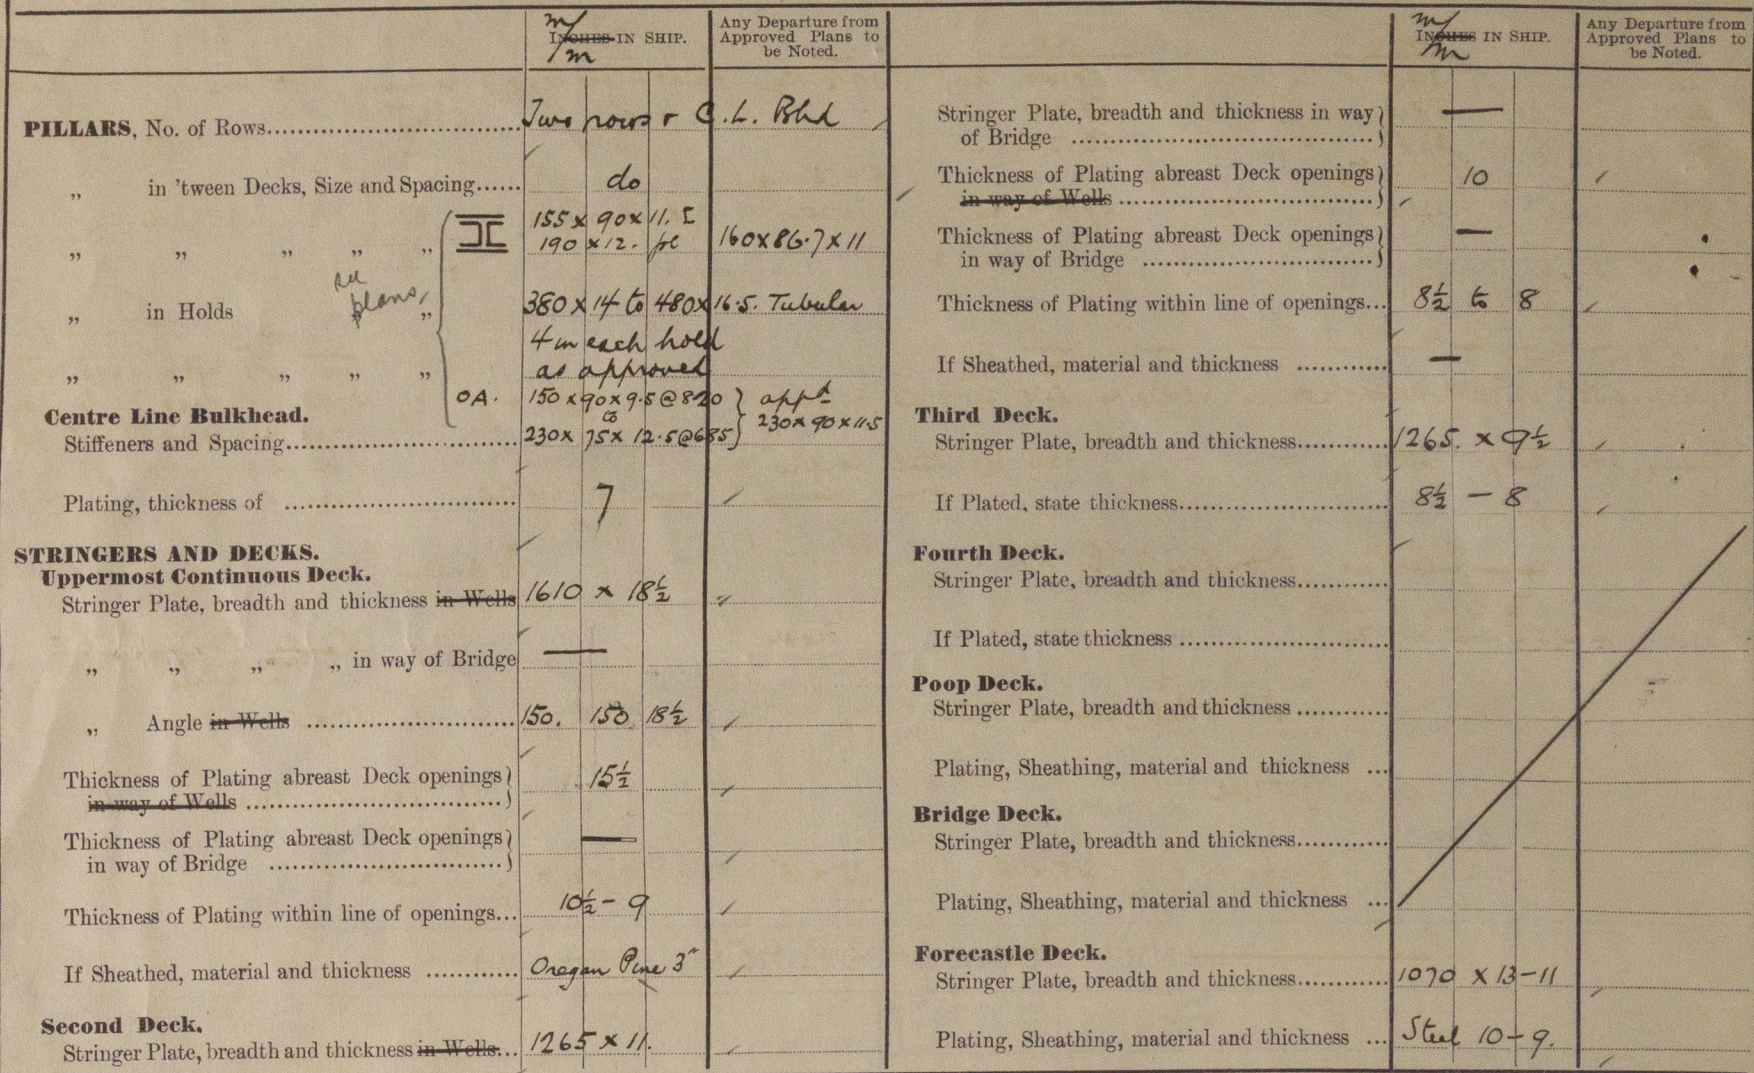 m/m INCHES IN SHIP. Any Departure from Approved Plans to be Noted.
PILLARS, No. of Rows Two rows + C.L. Bhd
„ in 'tween Decks, Size and Spacing do
155 x 90 x 11. [
„ „ „ „ „ 190 x 12. pl 160 x 86.7 x 11
see plans,
„ in Holds „ 380 x 14 to 480 x 16.5. Tubular
4 in each hold
„ „ „ „ „ as approved
OA. 150 x 90 x 9.5 @ 820 } appd
Centre Line Bulkhead. to 230 x 90 x 11.5
Stiffeners and Spacing 230 x 75 x 12.5 @ 685 }
Plating, thickness of 7
STRINGERS AND DECKS.
Uppermost Continuous Deck.
Stringer Plate, breadth and thickness in Wells 1610 x 18½
„ „ „ „ in way of Bridge —
„ Angle in Wells 150. 150 18½
Thickness of Plating abreast Deck openings } 15½
in way of Wells
Thickness of Plating abreast Deck openings } —
in way of Bridge
Thickness of Plating within line of openings... 10½ - 9
If Sheathed, material and thickness Oregan Pine 3"
Second Deck.
Stringer Plate, breadth and thickness in Wells... 1265 x 11.
m/m INCHES IN SHIP. Any Departure from Approved Plans to be Noted.
Stringer Plate, breadth and thickness in way } —
of Bridge
Thickness of Plating abreast Deck openings } 10
in way of Wells
Thickness of Plating abreast Deck openings } —
in way of Bridge
Thickness of Plating within line of openings... 8½ to 8
If Sheathed, material and thickness —
Third Deck.
Stringer Plate, breadth and thickness 1265. x 9½
If Plated, state thickness 8½ - 8
Fourth Deck.
Stringer Plate, breadth and thickness
If Plated, state thickness
Poop Deck.
Stringer Plate, breadth and thickness
Plating, Sheathing, material and thickness ...
Bridge Deck.
Stringer Plate, breadth and thickness
Plating, Sheathing, material and thickness ...
Forecastle Deck.
Stringer Plate, breadth and thickness 1070 x 13-11
Plating, Sheathing, material and thickness ... Steel 10-9.